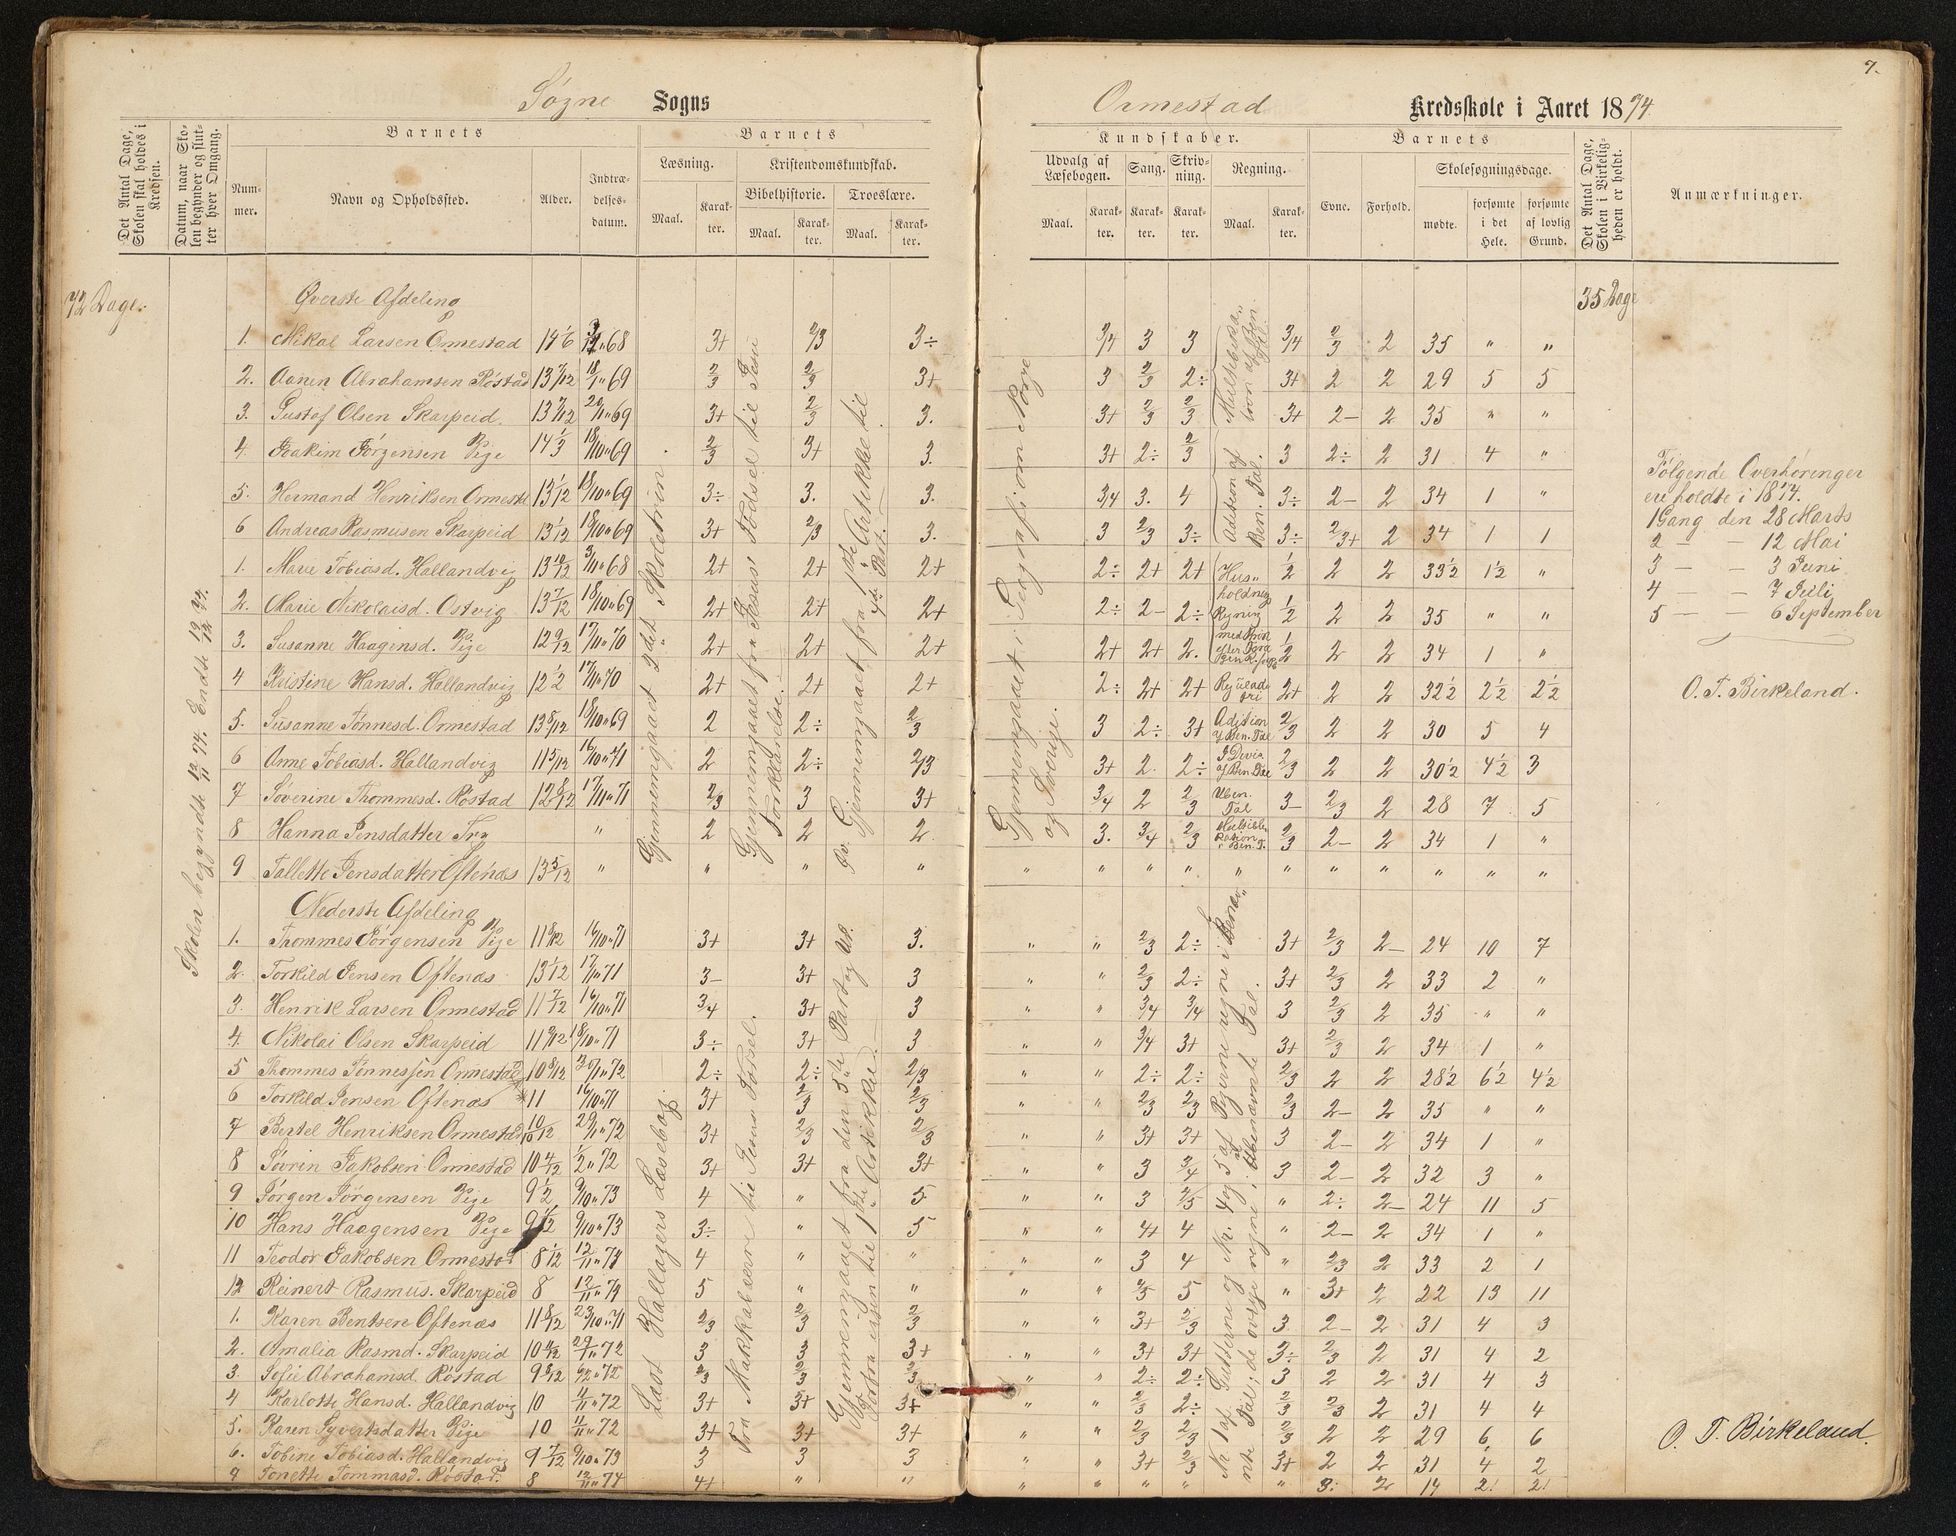 7.
Søgne Sogns
Ormestad Kredsskole i Aaret 1874
Det Antal Dage, Skolen skal holdes i Kredsen.
Datum, naar Skolen begynder og slutter hver Omgang.
Barnets
Nummer.
Navn og Opholdssted.
Alder.
Indtrædelsesdatum.
Barnets
Læsning.
Kristendomskundskab.
Bibelhistorie.
Troeslære.
Maal.
Karakter.
Maal.
Karakter.
Maal.
Karakter.
Kundskaber.
Udvalg af Læsebogen.
Sang.
Skrivning.
Regning.
Maal.
Karakter.
Karakter.
Karakter.
Maal.
Karakter.
Barnets
Evne.
Forhold.
Skolesøgningsdage.
mødte.
forsømte i det Hele.
forsømte af lovlig Grund.
Det Antal Dage, Skolen i Virkeligheden er holdt.
Anmærkninger.
72 Dage.
Skolen begyndte 12/11 74. Endte 19/12 74.
35 Dage
Øverste Afdeling
1. Nikal Larsen Ormestad 14 1/6 68 3+ 2/3 3÷ 3/4 3 3 3/4 2/3 2 35 " "
2. Aanen Abrahamsen Røstad 13 7/12 18/1 " 69 2/3 2/3 3+ 3 2/3 2÷ 3+ 2 2 29 5 5
3. Gustaf Olsen Skarpeid. 13 7/12 69 3+ 2/3 3. 3+ 2/3 2/3 3+ 2- 2 35 " "
4. Joakim Jørgensen Vige 14 1/3 18/10 " 69 2/3 3+ 3. 3+ 2÷ 2/3 3 2÷ 2 31 4 "
5. Hermand Henriksen Ormestd 13 1/12 18/10 " 69 3÷ 3. 3. 3/4 3. 4 3÷ 2- 2 34 1 "
6 Andreas Rasmusen Skarpeid 13 1/12 18/10 " 69 3+ 2/3 3. 3 2/3 3÷ 3÷ 2/3+ 2 34 1 1
1. Marie Tobiasd. Hallandvig 13 10/12 68 2+ 2+ 2+ 2÷ 2+ 2+ 1/2 2 2 33 1/2 1 1/2 "
2. Marie Nikolaisd. Ostvig 13 7/12 18/10 " 69 2+ 2+ 2+ 2÷ 2- 2÷ 1/2 2 2 35 " "
3. Susanne Haagensd. Vige 12 9/12 17/11 " 70 2+ 2+ 2+ 2+ 2+ 2. 1/2 2 2 34 1 "
4 Kristine Hansd. Hallandvig 12 1/2 17/11 " 70 2+ 2+ 2+ 2÷ 2+ 2+ 2+ 2 2 32 1/2 2 1/2 2 1/2
5. Susanne Tønnesd. Ormestad 13 8/12 18/10 " 69 2 2÷ 2/3 3 2÷ 3+ 2/3 2 2 30 5 4
6 Anne Tobiasd. Hallandvig 11 5/12 16/10 " 71 2 2÷ 2/3 3+ 2. 2÷ 2/3 2 2 30 1/2 4 1/2 3
7 Søverine Thommesd. Røstad 12 8/12 17/11 " 71 2/3 3 3+ 3/4 2 2/3 3- 2/3 2 28 7 5
8 Hanna Jensdatter Try " 2 2 2. 3. 3/4 2/3 2/3 2- 2 34 1 "
9 Tallette Jensdatter Oftenæs 13 5/12 " " " " " " " " " " " " " "
Nederste Afdeling
1. Thommes Jørgensen Vige 11 8/12 16/10 " 71 3+ 3+ 3. " " 2/3 2÷ 3+ 2/3 2- 24 10 7
2. Torkild Jensen Oftenæs 13 1/12 17/11 " 71 3- 3+ 3 " " 2/3 2÷ 3+ 2/3 2 33 2 "
3. Henrik Larsen Ormestad 11 7/12 16/10 " 71 3/4 3+ 3 " " 3/4 3/4 3 2/3 2 35 " "
4. Nikolai Olsen Skarpeid 11 9/12 18/10 " 71 3÷ 3+ 3 " " 3/4 3+ 3+ 2/3 2 34 1 "
5 Thommes Tønnessen Ormestad 10 8/12 72 2÷ 2÷ 2/3 " " 2÷ 2÷ 2/3 2 2 28 1/2 6 1/2 4 1/2
6 Torkild Jensen Oftenæs *11 16/10 " 71 3+ 2/3 2/3 " " 2/3 2/3 2/3 2- 2 35 " "
7 Bertel Henriksen Ormestad 10 10/12 29/11 " 72 3+ 2/3 2/3 " " 3+ 3+ 3 2- 2 34 1 "
8 Søvrin Jakobsen Ormestad 10 4/12 72 3+ 3+ 3+ " " 3 3/4 3 2- 2 32 3 "
9 Jørgen Jörgensen Vige 9 1/2 9/10 " 73 4 " 5 " " 3 " 2÷ 2- 24 11 5
10 Hans Haagensen Vige 9 9/10 " 73 3÷ " 5 " " 4+ 4 " 2- 2 34 1 "
11 Teodor Jakobsen Ormestad 8 1/12 12/11 " 74 4 " " " " 3 4 " 2/3 2 33 2 1
12 Reinert Rasmus. Skarpeid 8 12/11 " 74 5 " " " " 5 " 3+ 2 22 13 11
1. Karen Bentsen Oftenæs 11 8/12 23/10 " 71 2/3 2/3 2/3 " " 3+ 2/3 3 2- 2 31 4 3
2. Amalia Rasmd. Skarpeid 10 4/12 29/11 " 72 3 3 3+ " " 3+ 3+ 3÷ 2/3 2 31 4 2
3. Sofie Abrahamsd. Røstad 9 8/12 72 2/3 2/3 2/3 " " 2÷ 2÷ 3 2 2 31 4 3
4 Karlotte Hansd. Hallandvig 10 4/11 " 72 3+ 3+ 3+ " " 2/3 2÷ 2/3 2/3 2 31 4 4
5. Karen Syvertsdatter Vige 10 4/11 " 72 3+ 3+ 3+ " " 2/3 2/3 2/3 2 2 29 6 6
6. Tobine Tobiasd. Hallandvig 9 7/12 9/10 " 73 3 3 3 " " 3+ 2/3 3+ 2 2 31 4 2
7 Tonette Tommasd. Røstad. 8 12/11 " 74 4+ " " " " " " " 3. 2 14 2. 2.
Gjennemgaaet 2det Skoletrin.
Gjennemgaaet fra Jesus' Fødsel til Jesu Forklarelse.
Gjennemgaaet fra 1ste Artikkel til 4de Part.
Gjennemgaaet i Geografi om Norge og Sverige.
Multiplikation af Ben. Tal.
Adition af Ben. Tal.
Husholdnings Regning
Adition af Ben. Tal
I Divis. af Ben. Tal
Uben. Tal
Multiplikation i Ben. T.
Læst Hallagers Læsebog.
Fra Makkabæerne til Jesus Fødsel.
Gjennemgaaet fra den 5te Part og ud. Forfra igjen til 1ste Artikkel.
Nr. 1 af Gutterne og Nr. 4 og 5 af Pigerne regne i Benævnte Tal; de øvrige regne i Ubenævnte Tal.
Følgende Overhøringer
ere holdte i 1874.
1 Gang den 28 Marts
2 — — 12 Mai
3 — — 3 Juni
4 — — 7 Juli
5 — — 6 September
O. T. Birkeland.
O. T. Birkeland.